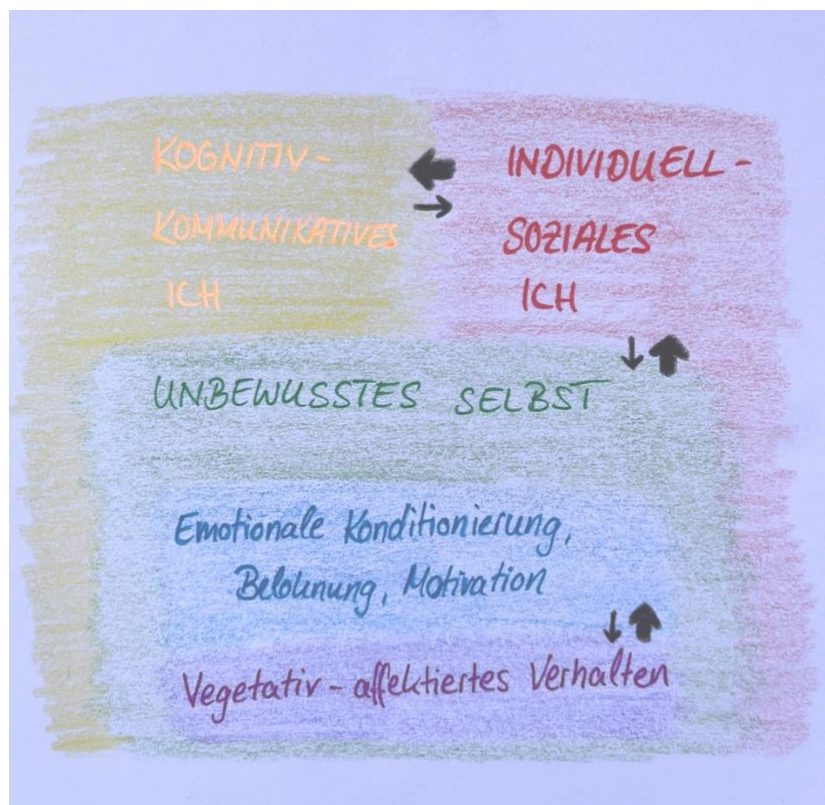 KOGNITIV-
KOMMUNIKATIVES
ICH
INDIVIDUELL-
SOZIALES
ICH
UNBEWUSSTES SELBST
Emotionale Konditionierung,
Belohnung, Motivation
Vegetativ-affektiertes Verhalten